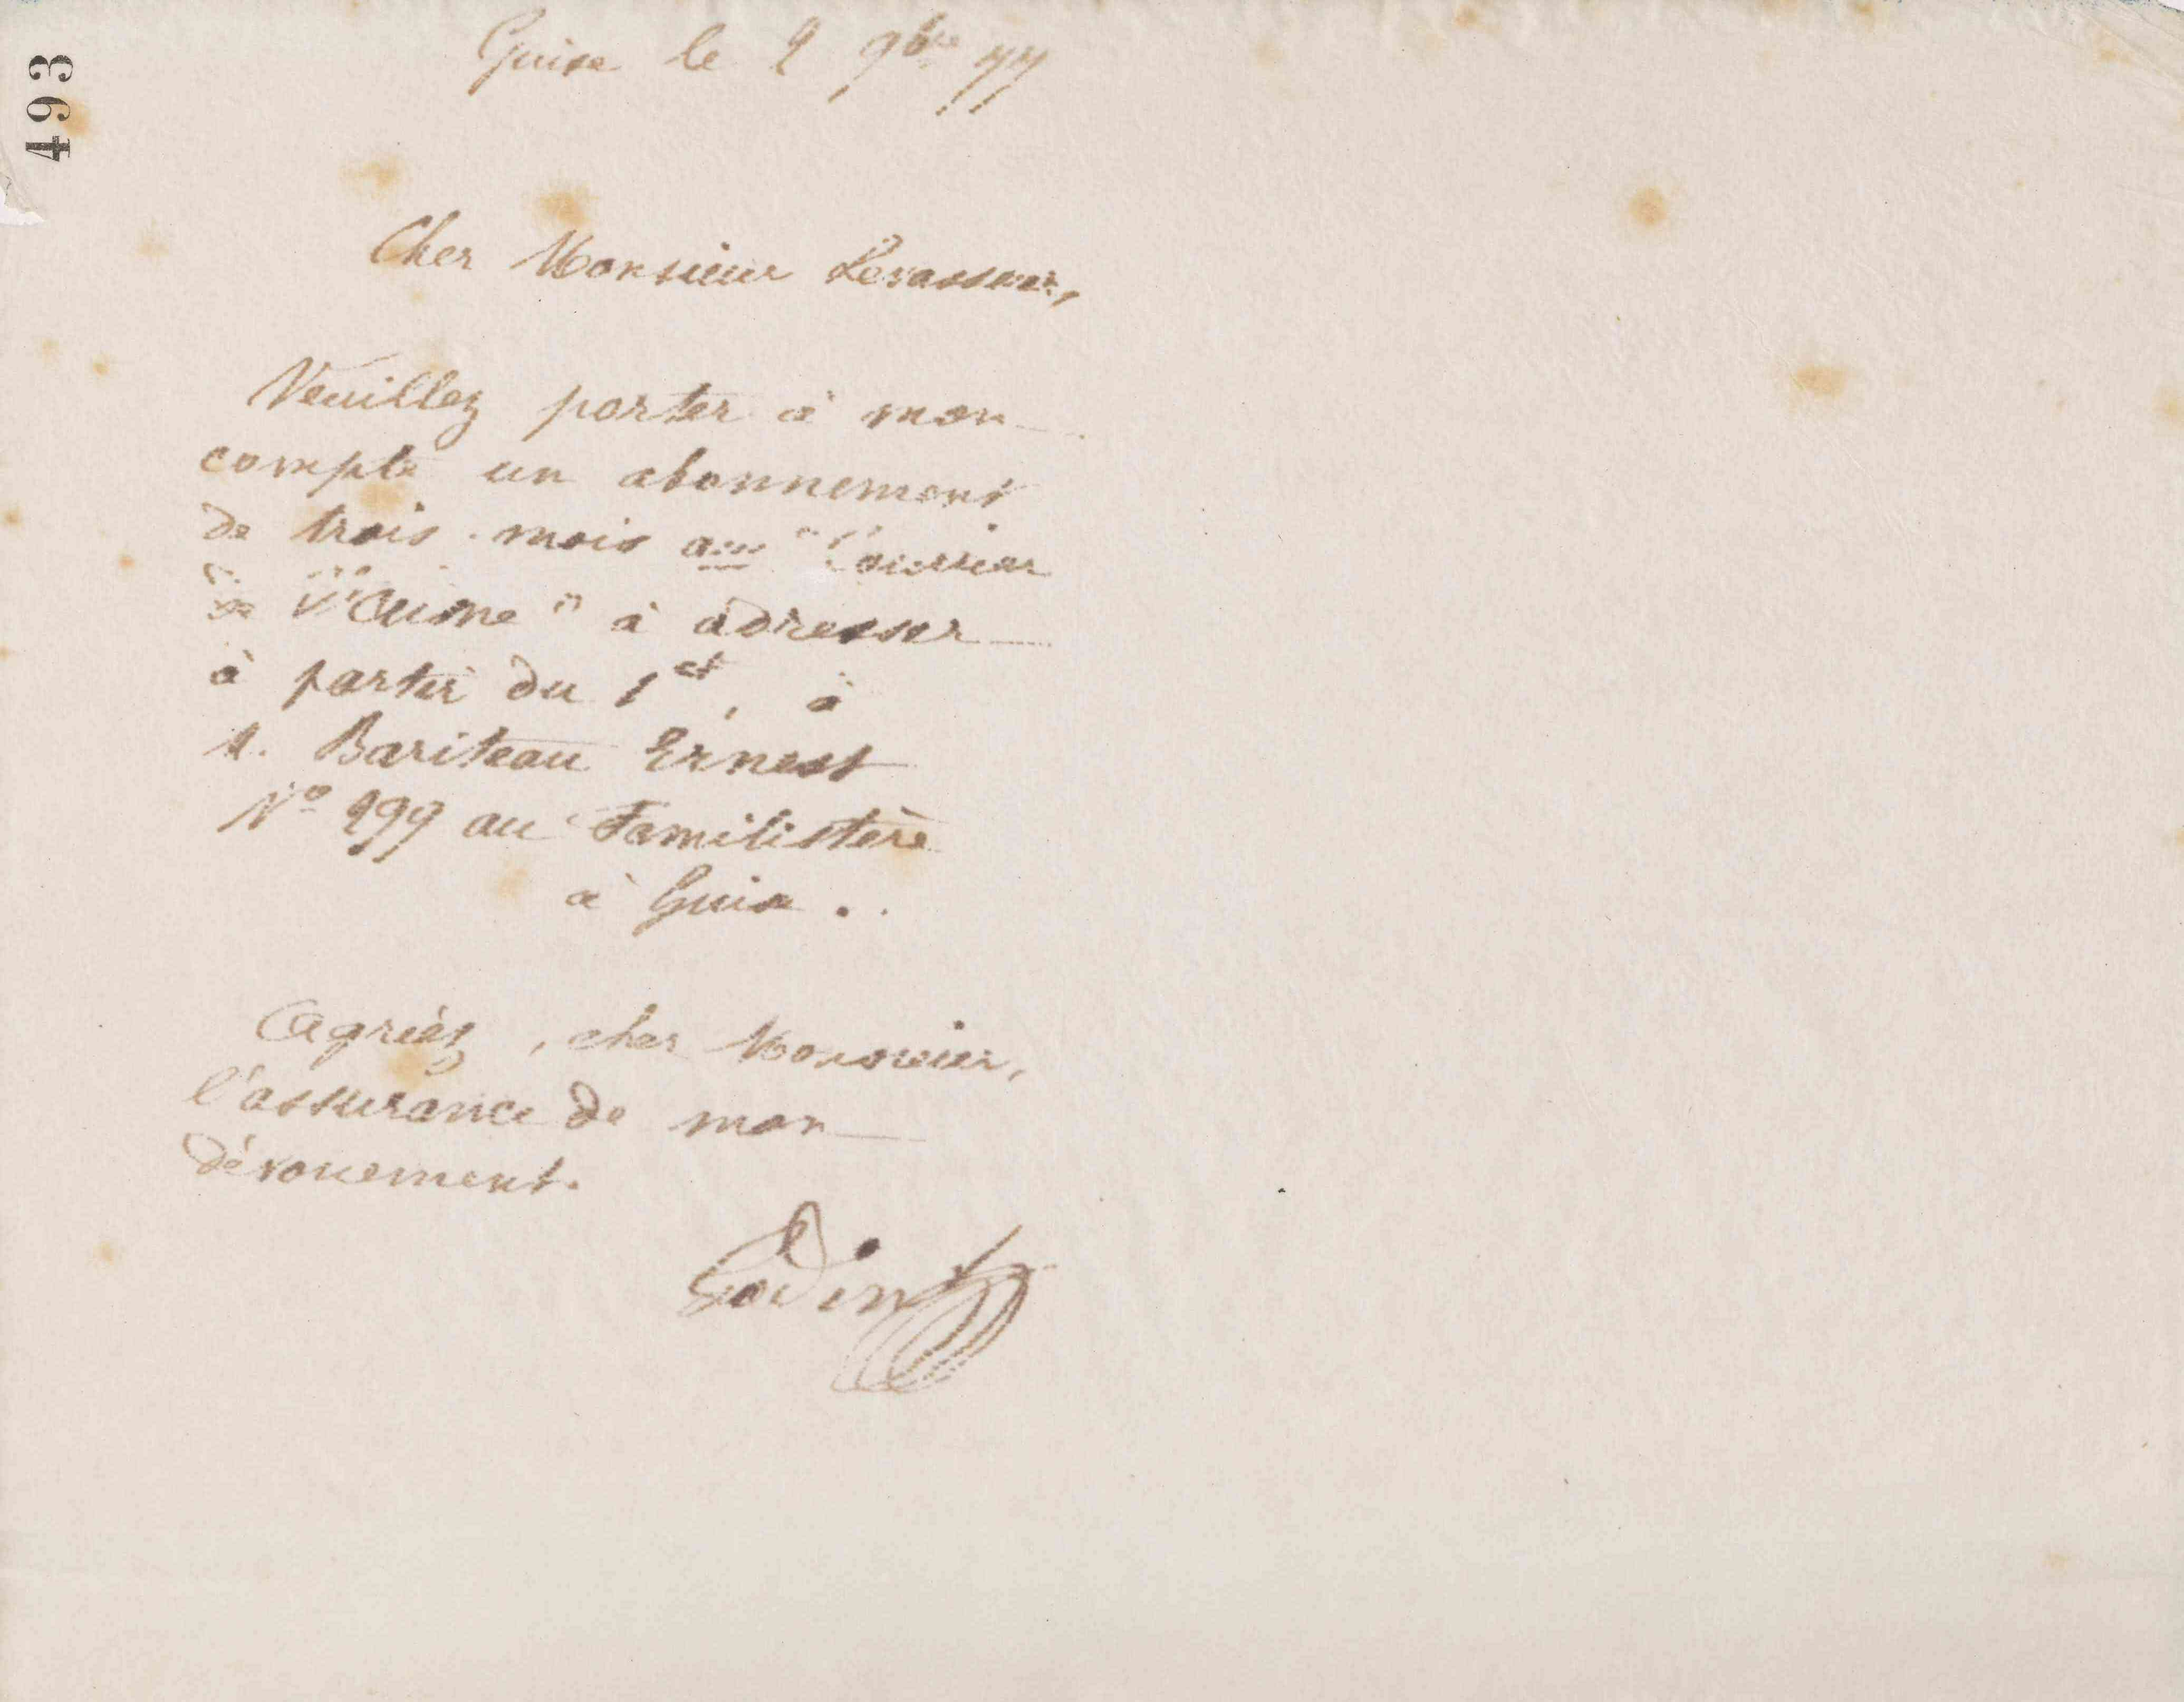 493
Guise le 2 9bre 77
Cher Monsieur Levasseur,
Veuillez porter à mon
compte un abonnement
de trois mois au "Courrier
de l'Aisne" à adresser
à partir du 1er, à
M. Bariteau Ernest
No 299 au Familistère
à Guise.
Agréez, cher Monsieur,
l'assurance de mon
dévouement.
Godin